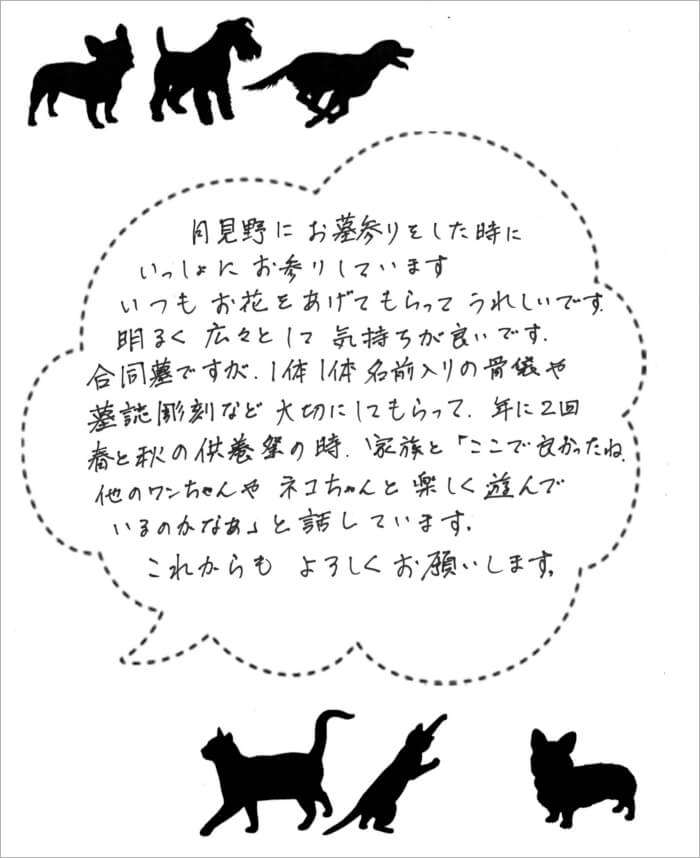 月見野に お墓参りをした時に
いっしょに お参りしています
いつも お花をあげてもらって うれしいです.
明るく 広々として 気持ちが良いです.
合同墓ですが、1体1体 名前入りの骨袋や
墓誌彫刻など 大切にしてもらって、年に2回
春と秋の供養祭の時、家族と「ここで良かったね、
他のワンちゃんや ネコちゃんと 楽しく遊んで
いるのかなぁ」と話しています。
これからも よろしくお願いします。